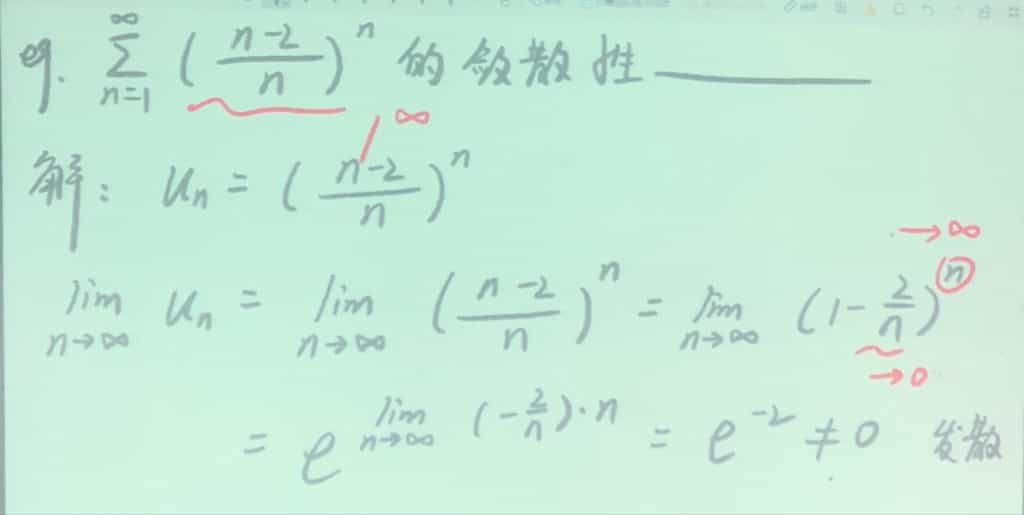 eg. ∑_{n=1}^{∞} (\frac{n-2}{n})^n 的敛散性______
∞
解: u_n = (\frac{n-2}{n})^n
→∞
lim_{n→∞} u_n = lim_{n→∞} (\frac{n-2}{n})^n = lim_{n→∞} (1-\frac{2}{n})^n
→0
= e^{lim_{n→∞} (-\frac{2}{n})·n} = e^{-2} ≠ 0 发散